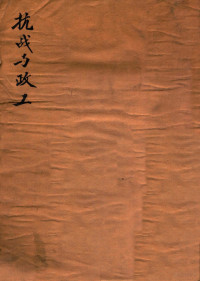 抗战与政工